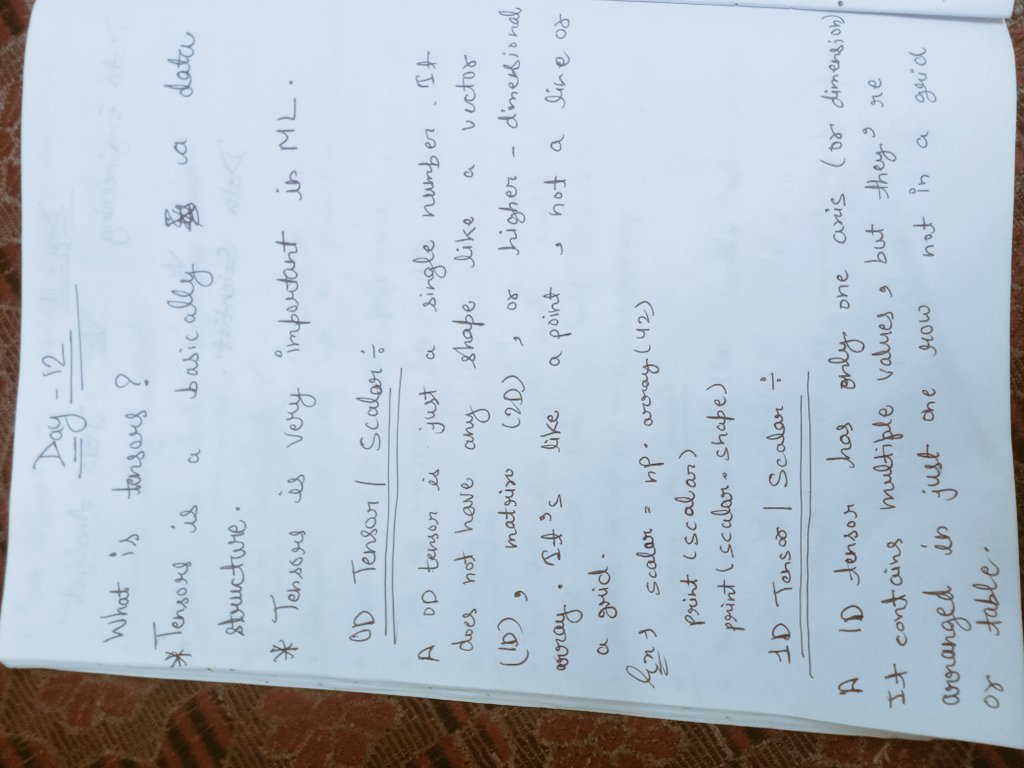 Day-12
What is tensors?
* Tensors is a basically a data
structure.
* Tensors is very important is ML.
0D Tensor | Scalar ÷
A 0D tensor is just a single number. It
does not have any shape like a vector
(1D), matrix (2D), or higher-dimensional
array. It's like a point, not a line or
a grid.
Ex → scalar = np.array(42)
print(scalar)
print(scalar.shape)
1D Tensor | Scalar ÷
A 1D tensor has only one axis (or dimension).
It contains multiple values, but they're
arranged in just one row not in a grid
or table.